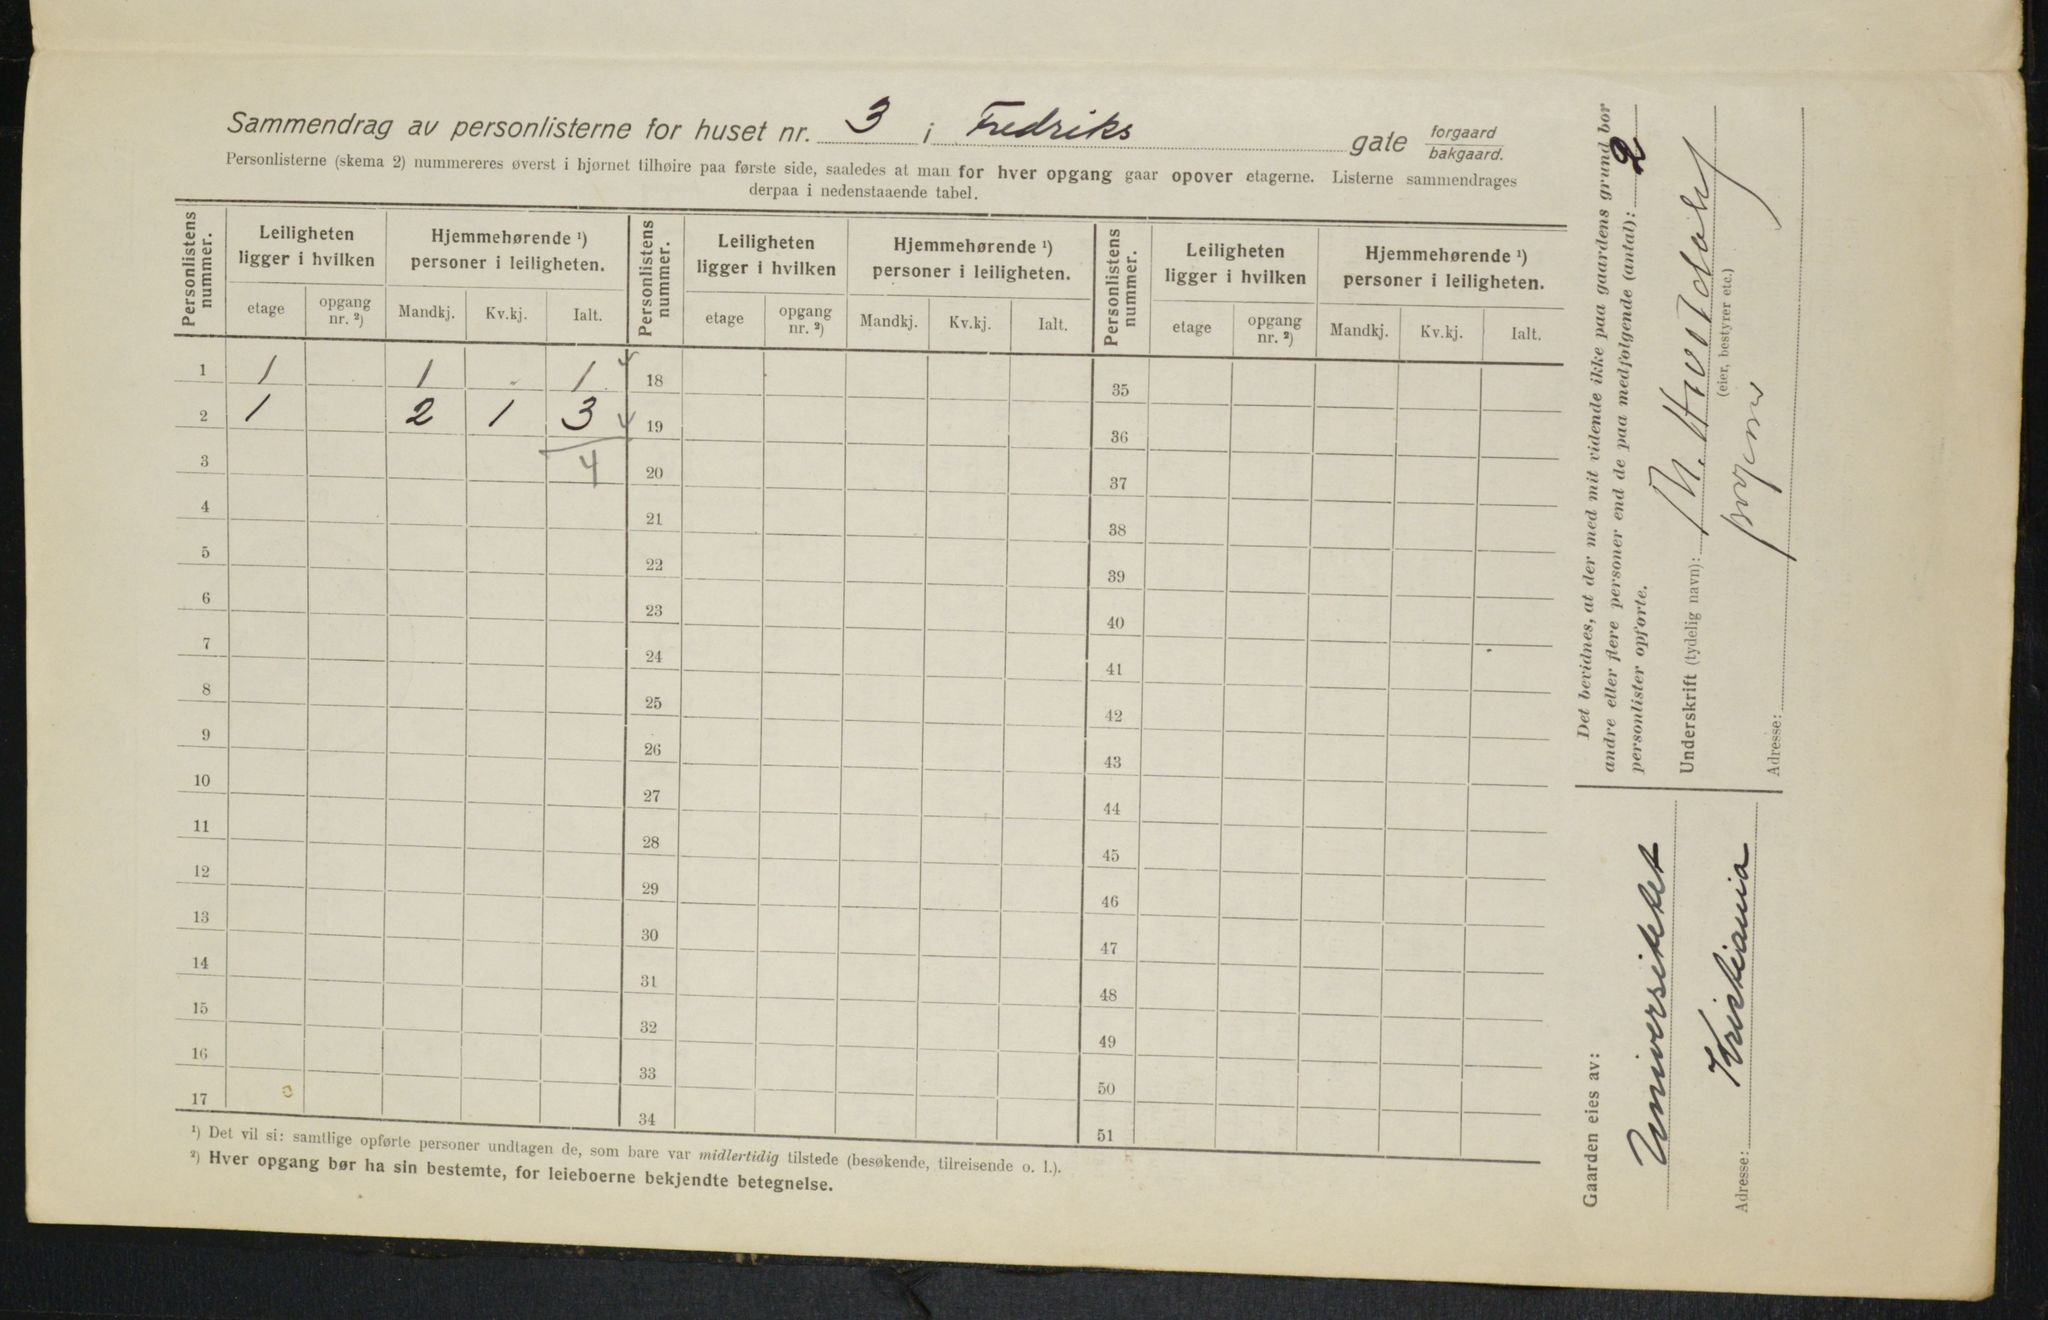 Sammendrag av personlisterne for huset nr. 3 i Fredriks gate forgaard bakgaard.
Personlisterne (skema 2) nummereres øverst i hjørnet tilhøire paa første side, saaledes at man for hver opgang gaar opover etagerne. Listerne sammendrages
derpaa i nedenstaaende tabel.
Personlistens nummer. Leiligheten ligger i hvilken Hjemmehørende ¹) personer i leiligheten. Personlistens nummer. Leiligheten ligger i hvilken Hjemmehørende ¹) personer i leiligheten. Personlistens nummer. Leiligheten ligger i hvilken Hjemmehørende ¹) personer i leiligheten.
etage opgang nr. ²) Mandkj. Kv.kj. Ialt. etage opgang nr. ²) Mandkj. Kv.kj. Ialt. etage opgang nr. ²) Mandkj. Kv.kj. Ialt.
1 1 1 1 18 35
2 1 2 1 3 19 36
3 4 20 37
4 21 38
5 22 39
6 23 40
7 24 41
8 25 42
9 26 43
10 27 44
11 28 45
12 29 46
13 30 47
14 31 48
15 32 49
16 33 50
17 34 51
¹) Det vil si: samtlige opførte personer undtagen de, som bare var midlertidig tilstede (besøkende, tilreisende o. l.).
²) Hver opgang bør ha sin bestemte, for leieboerne bekjendte betegnelse.
Det bevidnes, at der med mit vidende ikke paa gaardens grund bor
andre eller flere personer end de paa medfølgende (antal): 2
personlister opførte.
Underskrift (tydelig navn):
(eier, bestyrer etc.)
Adresse:
Gaarden eies av:
Universitetet
Adresse: Kristiania